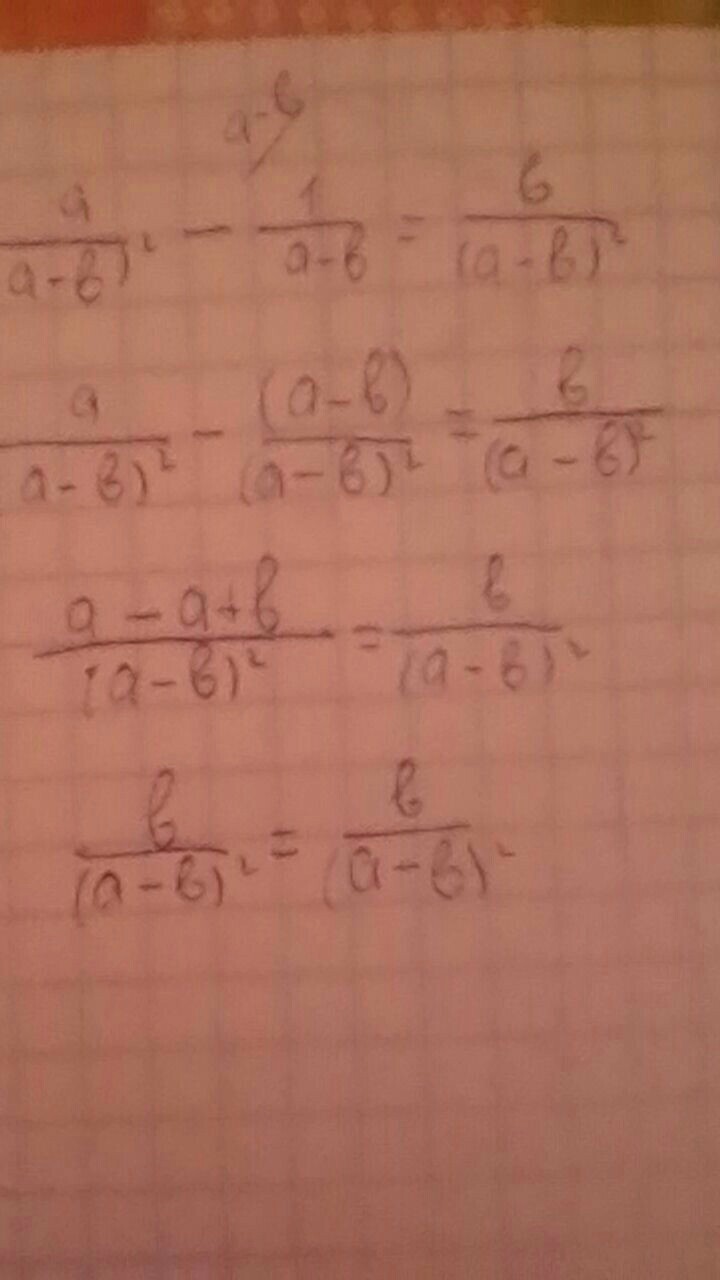 a-b/
a/(a-b)² - 1/(a-b) = b/(a-b)²
a/(a-b)² - (a-b)/(a-b)² = b/(a-b)²
(a-a+b)/(a-b)² = b/(a-b)²
b/(a-b)² = b/(a-b)²